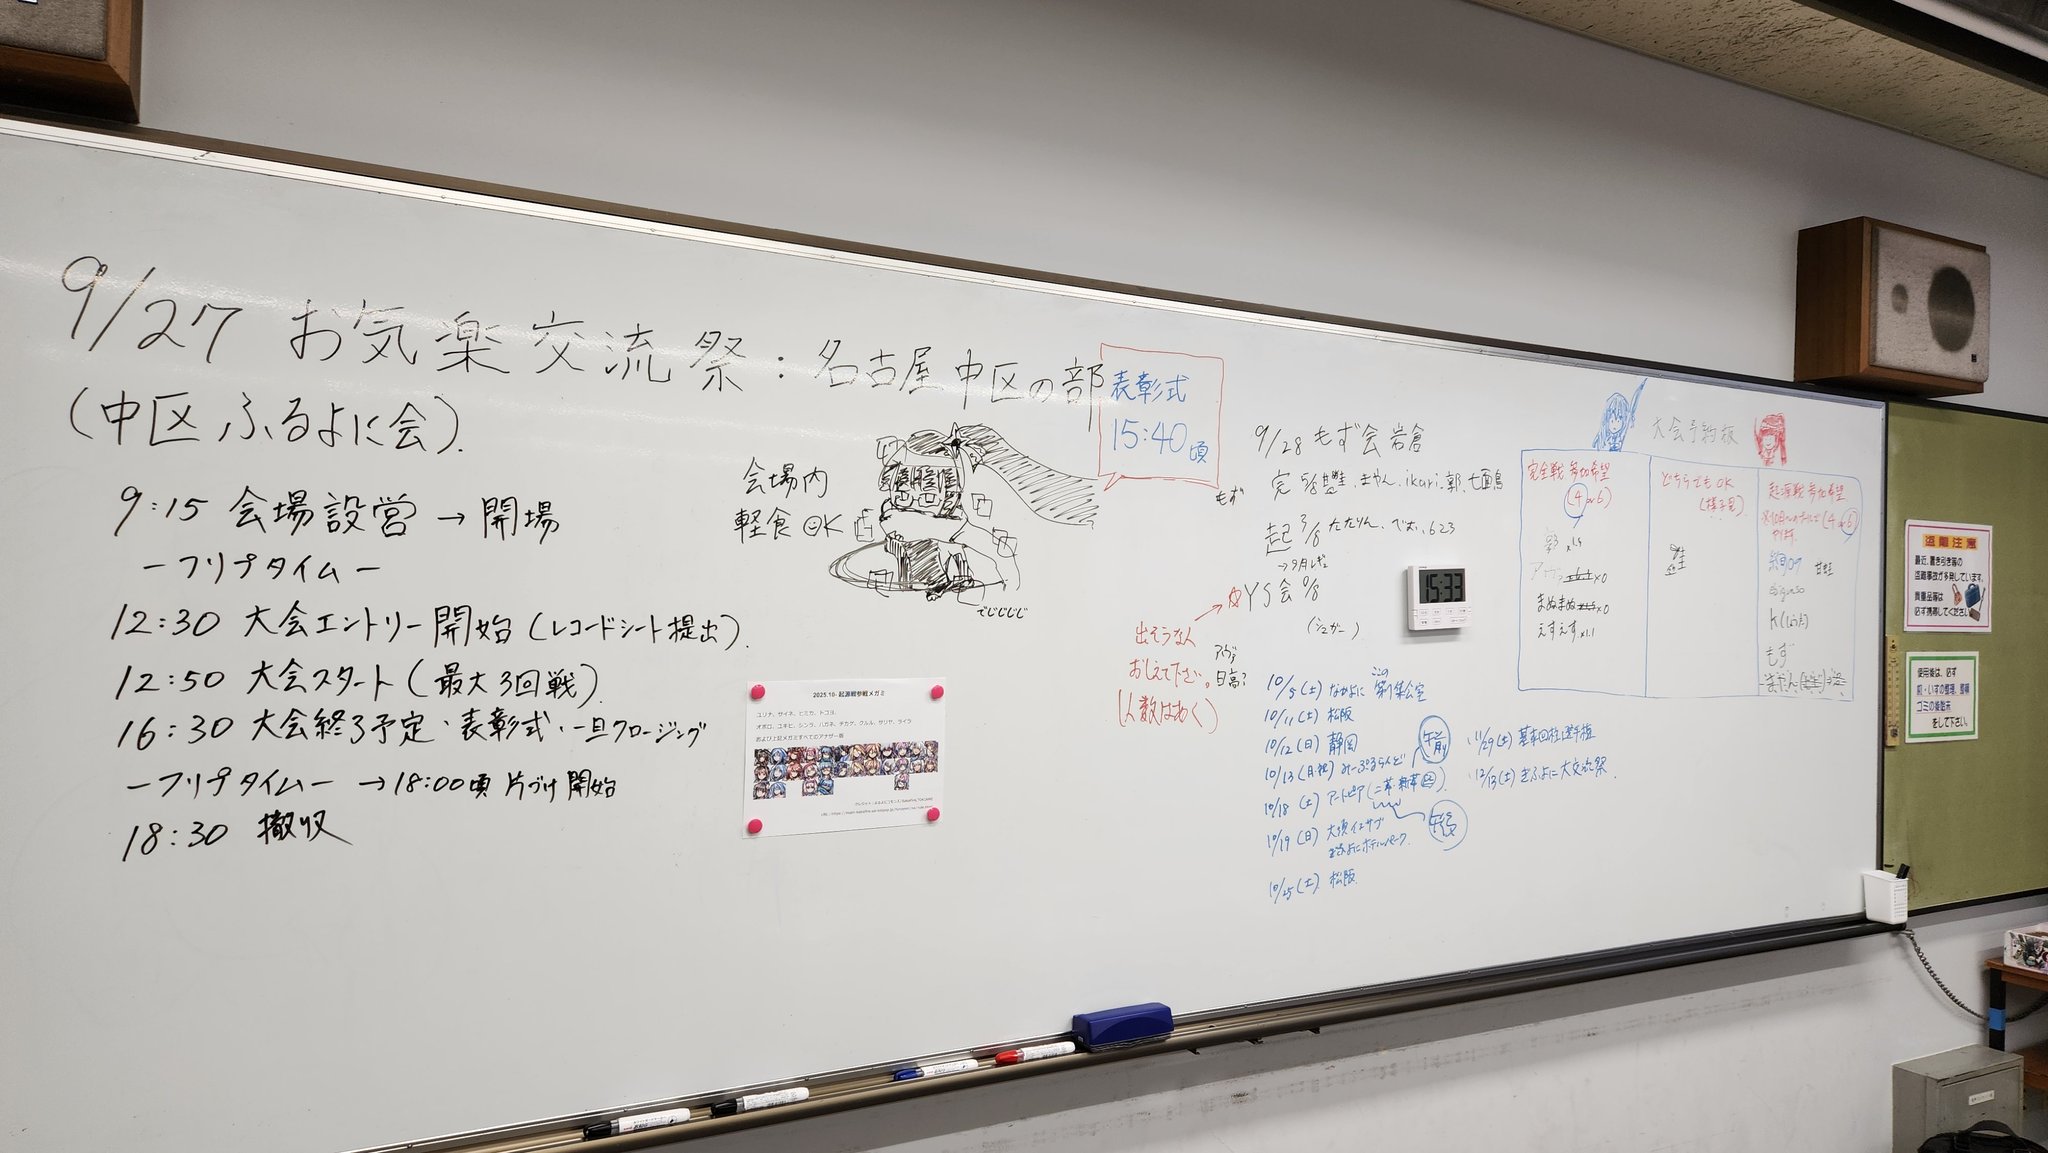 9/27 お気楽交流祭：名古屋中区の部
(中区ふるよに会).
9:15 会場設営 → 開場
ーフリプタイムー
12:30 大会エントリー開始（レコードシート提出）
12:50 大会スタート（最大3回戦）
16:30 大会終了予定・表彰式・一旦クロージング
ーフリプタイムー →18:00頃 片づけ開始
18:30 撤収
表彰式
15:40頃
会場内
軽食OK
でじじじじ
2025.10- 起源戦参戦メガミ
ユリナ、サイネ、ヒミカ、トコヨ、
オボロ、ユキヒ、シンラ、ハガネ、チカゲ、クルル、サリヤ、ライラ
および上記メガミすべてのアナザー版
9/28 もず会岩倉
もず
完 5/8
ikari.郭.七面鳥
起 3/8 たたりん、べむ、623
→9月レギュ
☆YS会 0/8
(シュガー)
出そうな人
おしえて下さい。
(人数はあく)
アヴァ
日高?
15:33
10/5(土) なかよに この第1集会室
10/11(土) 松阪
10/12(日) 静岡
10/13(月・祝) みーぷるらんど
午前
10/18(土) アートピア
10/19(日) 大須イエサブ
ぎふよにホテルパーク
午後
10/25(土) 松阪
11/29(土) 基本回柱選手権
12/13(土) ぎふよに大交流祭
大会予約板
完全戦 参加希望
(4 or 6)
郭
アヴァ x0
まぬまぬ x0
えすえす x1.1
どちらでもOK
(様子見)
起源戦 参加希望
(4 or 6)
甘蛙
K(しょうた)
もず
盗難注意
最近、置き引き等の
盗難事故が多発しています。
貴重品等は
必ず携帯してください
使用後は、必ず
机・いすの整理、整頓
ゴミの後始末
をして下さい。